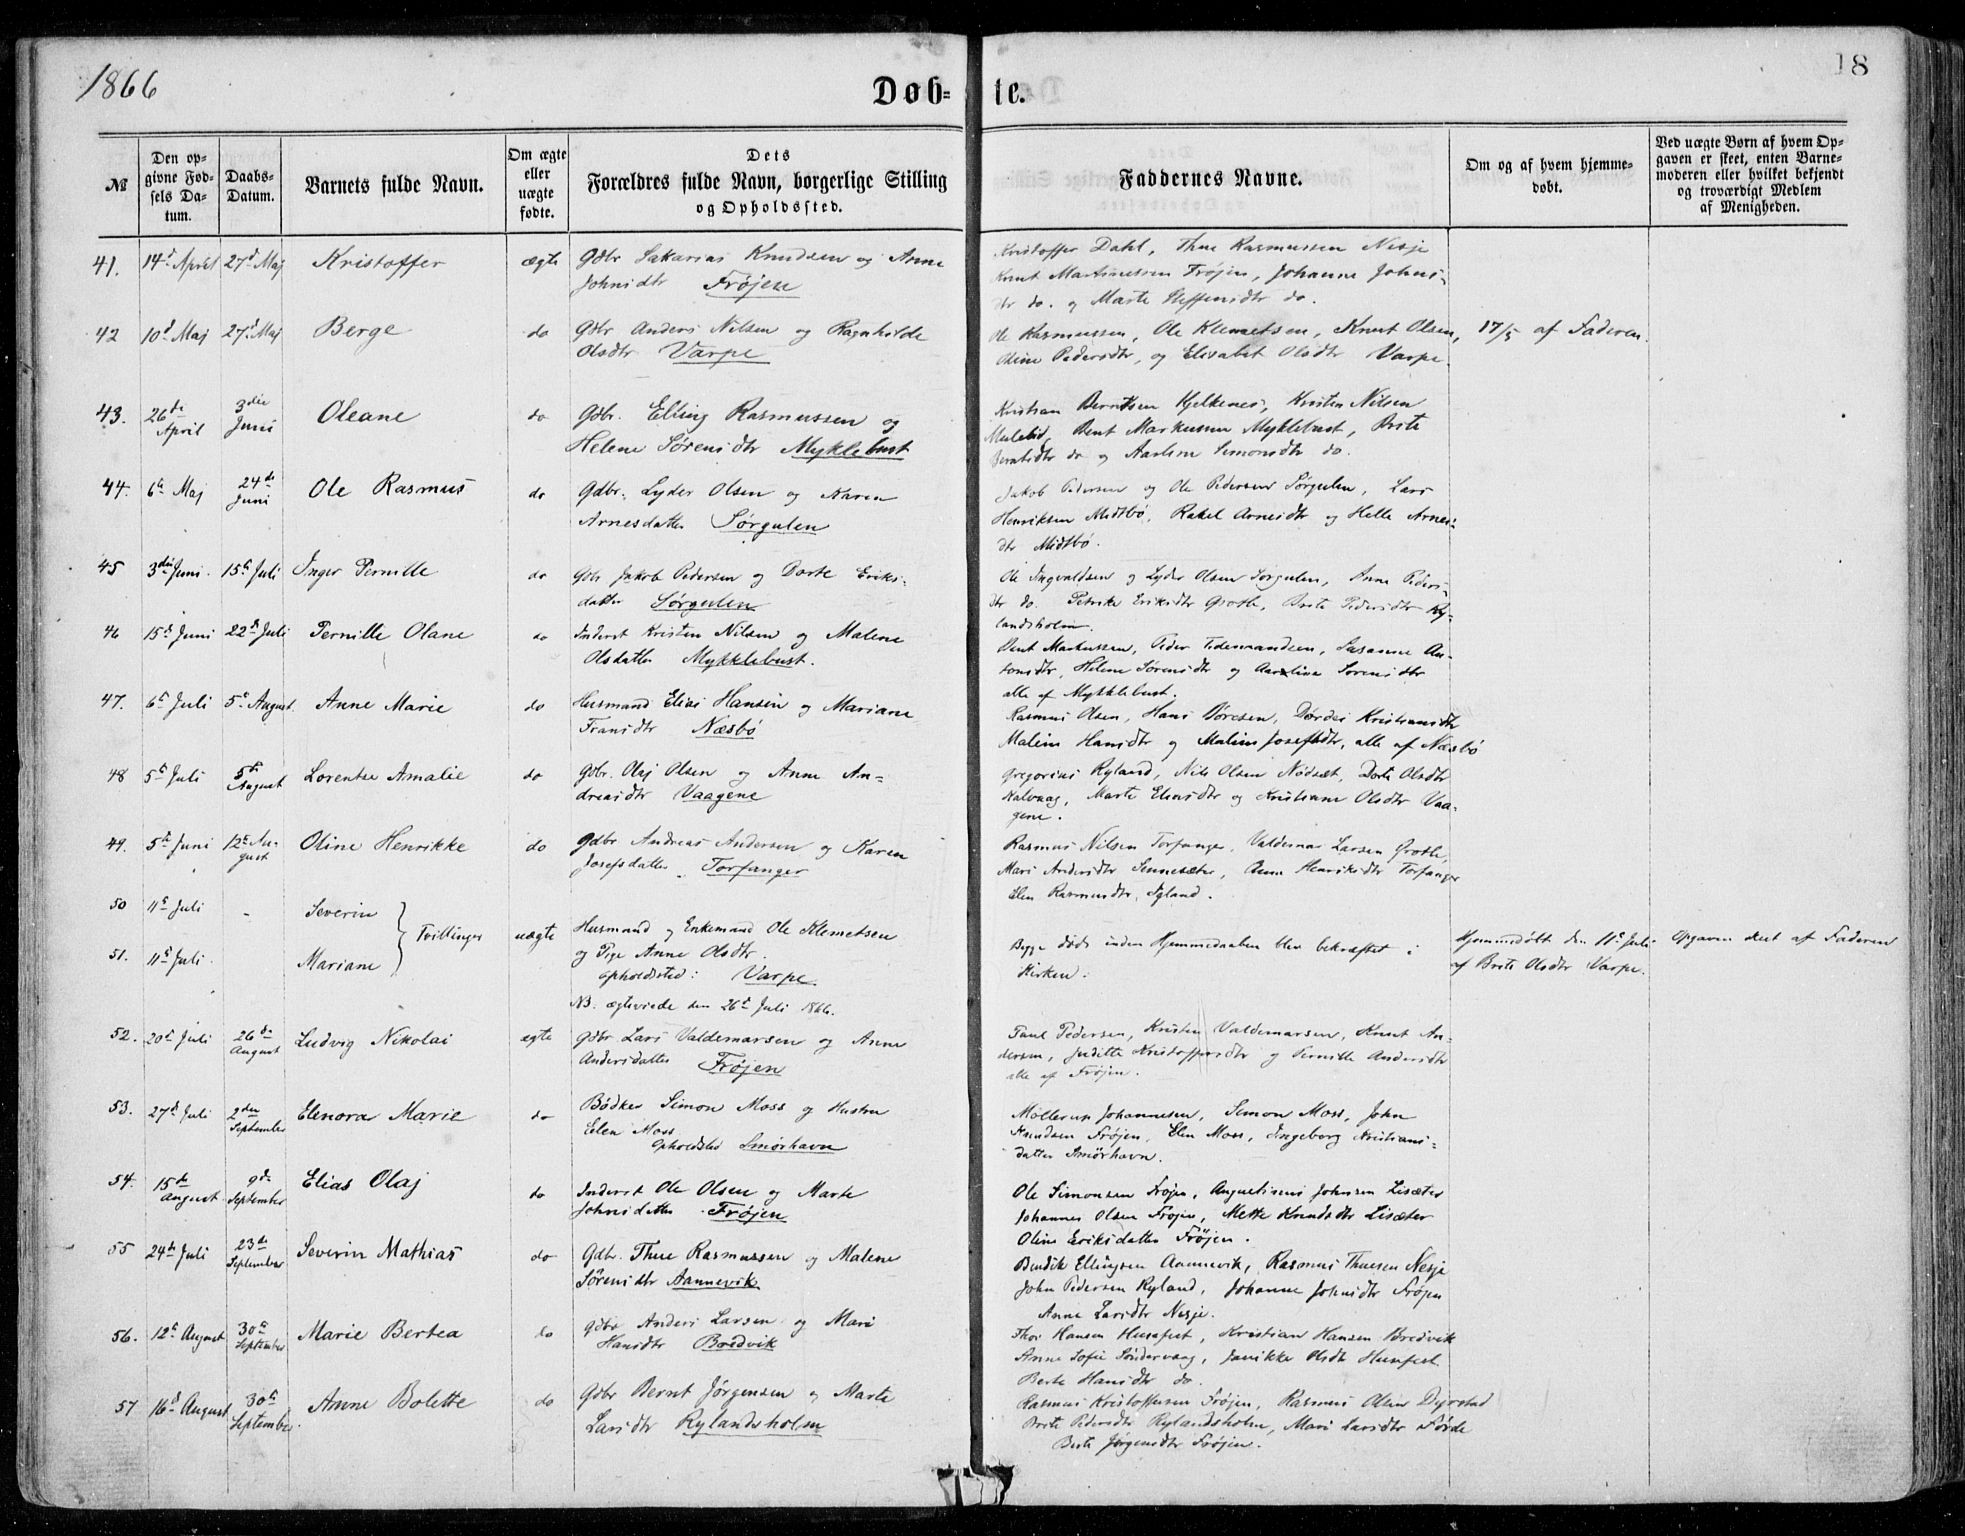 1866
Døb-
te.
18
№
Den op-
givne Fød-
sels Da-
tum.
Daabs-
Datum.
Barnets fulde Navn.
Om ægte
eller
uægte
fødte.
Dets
Forældres fulde Navn, borgerlige Stilling
og Opholdssted.
Faddernes Navne.
Om og af hvem hjemme-
døbt.
Ved uægte Børn af hvem Op-
gaven er skeet, enten Barne-
moderen eller hvilket bekjendt
og troværdigt Medlem
af Menigheden.
41. 14d April 27d Maj Kristoffer ægte Gdbr Sakarias Knudsen og Anne
Johnsdtr Frøjen
Kristoffer Dahl, Thue Rasmussen Nesje
Knut Martinussen Frøjen, Johanne Johns-
dtr do. og Marte Steffensdtr do.
42 10d Maj 27d Maj Berge do Gdbr Anders Nilsen og Ragnhilde
Olsdtr Varpe
Ole Rasmussen, Ole Klemetsen, Knut Olsen,
Oline Pedersdtr, og Elisabet Olsdtr Varpe.
17/5 af Faderen.
43. 26de April 3die Juni Oleane do Gdbr. Elling Rasmussen og
Helene Sørensdtr Myklebust
Kristian Berntsen Hjelkenes, Kristen Nilsen
Mulebø, Bent Markussen Myklebust, Brite
Berntsdtr do og Aarline Simonsdtr do.
44. 6te Maj 24de Juni Ole Rasmus do Gdbr. Lyder Olsen og Karen
Arnesdatter Sørgulen
Jakob Pedersen og Ole Pedersen Sørgulen, Lars
Henriksen Midtbø, Rakel Arnesdtr og Helle Arnes-
dtr Midtbø.
45 3die Juni. 15de Juli Inger Pernille do Gdbr Jakob Pedersen og Dorte Eriks-
datter Sørgulen
Ole Ingvaldsen og Lyder Olsen Sørgulen, Anne Peders-
dtr do. Petrike Eriksdtr Grotle, Brite Pedersdtr Ry-
landsholm.
46 15d Juni 22d Juli Pernille Olane do Inderst Kristen Nilsen og Malene
Olsdatter Mykklebust.
Bent Markussen, Peder Tidemandsen, Susanne An-
tonsdtr, Helene Sørensdtr og Aarline Sørensdtr
alle af Mykklebust.
47. 6te Juli 5te August Anne Marie do Husmand Elias Hansen og Mariane
Fransdtr Næsbø
Rasmus Olsen, Hans Børesen, Dørdei Kristiansdtr
Malene Hansdtr og Malene Josefsdtr, alle af Næsbø
48 5te Juli 5te August Lorentse Amalie do Gdbr. Olaj Olsen og Anne An-
dreasdtr Vaagene
Gregorius Ryland, Nils Olsen Nødset, Dorte Olsdtr
Kalvaag, Marte Eliasdtr og Kristiane Olsdtr Vaa-
gene.
49. 5te Juni 12te Au-
gust Oline Henrikke do Gdbr Andreas Andersen og Karen
Josefsdatter Torfanger
Rasmus Nilsen Torfanger, Valdemar Larsen Grotle,
Mari Andersdtr Sennesæter, Anne Henriksdtr Torfanger
Elen Rasmusdtr, Igland.
50 11te Juli - Severin
51. 11te Juli. Mariane
Tvillinger uægte Husmand og Enkemand Ole Klemetsen
og Pige Anne Olsdtr.
Opholdssted: Varpe.
NB. ægteviede den 26te Juli 1866.
Begge døde inden Hjemmedaaben blev bekræftet i
Kirken.
Hjemmedøbt den 11te Juli
af Brite Olsdtr Varpe.
Opgaven skeet af Faderen
52. 20de Juli 26de August Ludvig Nikolai ægte Gdbr Lars Valdemarsen og Anne
Andersdatter Frøjen
Paul Pedersen, Kristen Valdemarsen, Knut An-
dersen, Juditte Kristoffersdtr og Pernille Andersdtr
alle af Frøjen.
53. 27d Juli 2den September Elenora Marie do Bødker Simon Moss og Hustru
Elen Moss
Opholdssted Smørhavn
Møllerup Johannesen, Simon Moss, John
Knudsen Frøjen, Elen Moss, Ingeborg Kristians-
datter Smørhavn.
54. 15de August 9de September Elias Olaj do Inderst Ole Olsen og Marte
Johnsdatter Frøjen
Ole Simonsen Frøjen, Augustinus Johnsen Lisæter
Johannes Olsen Frøjen, Mette Knudsdtr Lisæter
Oline Eriksdatter Frøjen.
55 24de Juli 23de September Severin Mathias do Gdbr. Thue Rasmussen og Malene
Sørensdtr Aannevik
Bendik Ellingsen Aannevik, Rasmus Thuesen Nesje
John Pedersen Ryland, Johanne Johnsdtr Frøjen
Anne Larsdtr Nesje.
56. 12te August 30te September Marie Bertea do Gdbr Anders Larsen og Mari
Hansdtr Bredvik
Thor Hansen Husefest, Kristian Hansen Bredvik
Anne Sofie Søndervaag, Janikke Olsdtr Husefest
Berte Hansdtr do.
57 16d August 30te September. Anne Bolette do Gdbr Bernt Jørgensen og Marte
Larsdtr Rylandsholm
Rasmus Kristoffersen Frøjen, Rasmus Olsen Dyrstad
Brite Pedersdtr Rylandsholm, Mari Larsdtr Førde
Berte Jørgensdtr Frøjen.